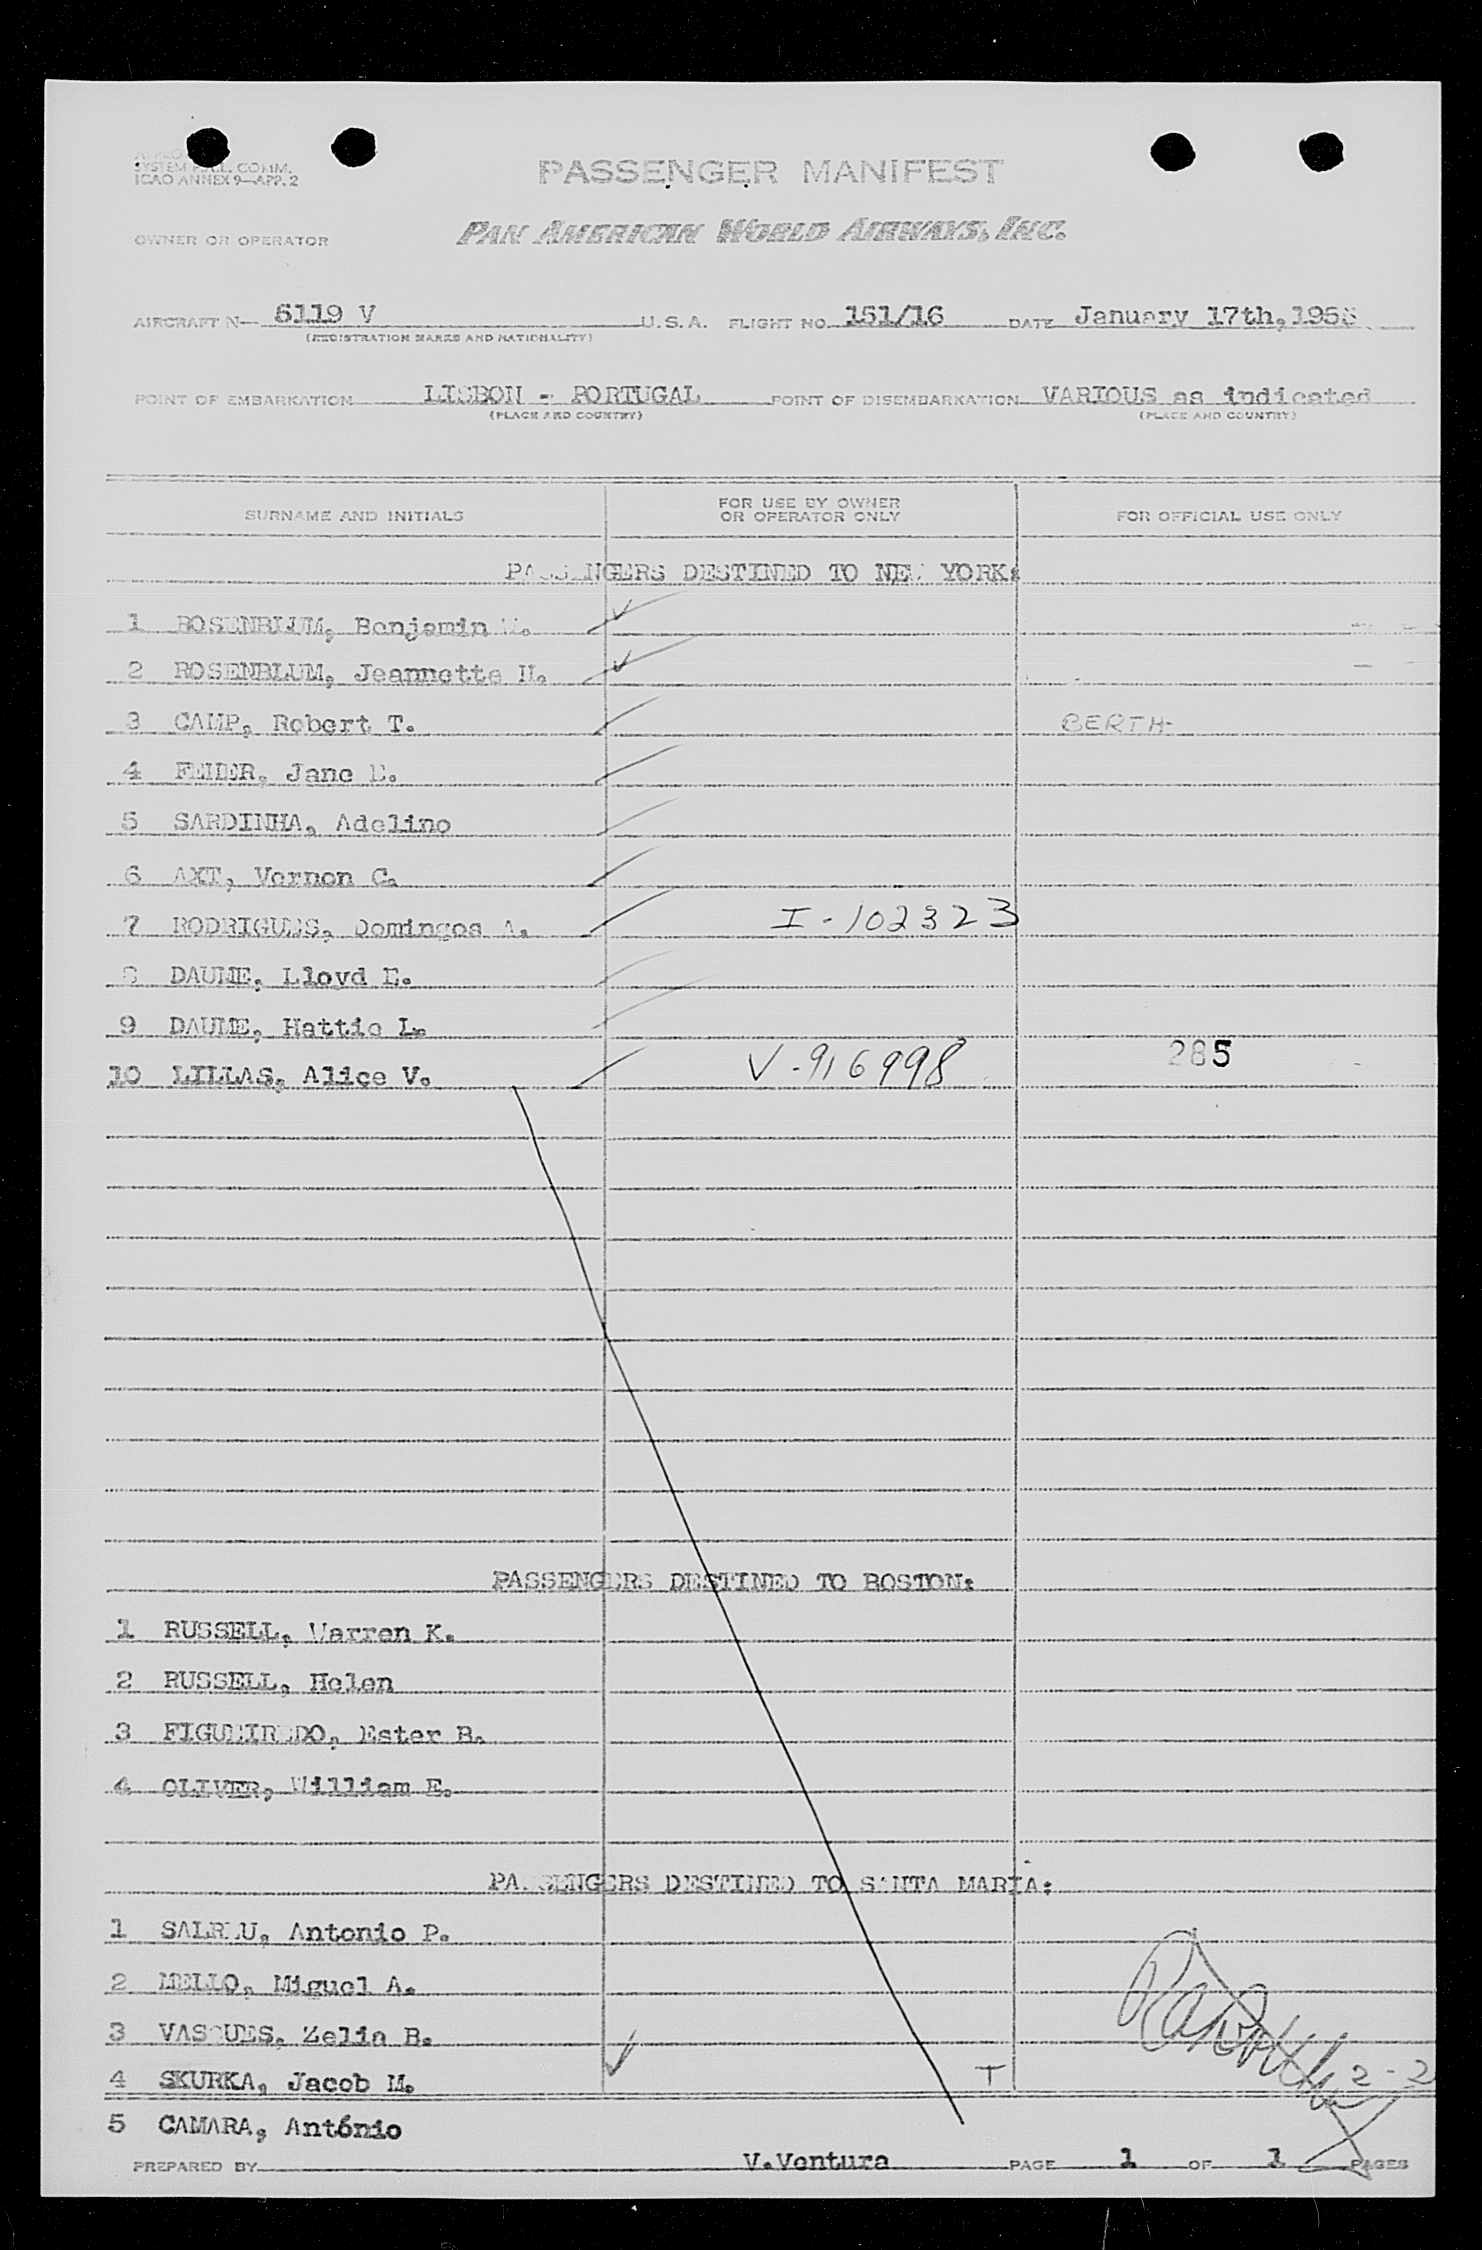 SYSTEM FAL. COMM.
ICAO ANNEX 9—APP. 2
PASSENGER MANIFEST
OWNER OR OPERATOR PAN AMERICAN WORLD AIRWAYS, INC.
AIRCRAFT N— 6119 V U.S.A. FLIGHT NO. 151/16 DATE January 17th, 195
(REGISTRATION MARKS AND NATIONALITY)
POINT OF EMBARKATION LISBON - PORTUGAL POINT OF DISEMBARKATION VARIOUS as indicated
(PLACE AND COUNTRY) (PLACE AND COUNTRY)
SURNAME AND INITIALS FOR USE BY OWNER OR OPERATOR ONLY FOR OFFICIAL USE ONLY
PASSENGERS DESTINED TO NEW YORK:
1 ROSENBLUM, Benjamin M.
2 ROSENBLUM, Jeannette H.
3 CAMP, Robert T. BERTH
4 FEIDER, Jane E.
5 SARDINHA, Adelino
6 AXT, Vernon C.
7 RODRIGUES, Domingos A. I-102323
8 DAUME, Lloyd E.
9 DAUME, Hattie L.
10 LILLAS, Alice V. V-916998 285
PASSENGERS DESTINED TO BOSTON:
1 RUSSELL, Warren K.
2 RUSSELL, Helen
3 FIGUEIREDO, Ester B.
4 OLIVER, William E.
PASSENGERS DESTINED TO SANTA MARIA:
1 SALREU, Antonio P.
2 MELLO, Miguel A.
3 VASQUES, Zelia B.
4 SKURKA, Jacob M. T 2-2
5 CAMARA, António
PREPARED BY V.Ventura PAGE 1 OF 1 PAGES